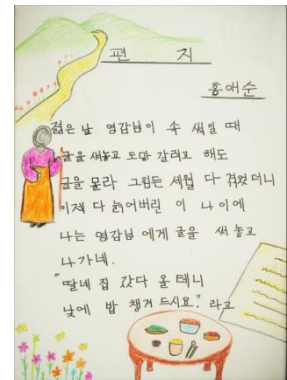 편 지
홍애순
젊은 날 영감님이 속 썩일 때
글을 써놓고 도망 갈려고 해도
글을 몰라 그힘든 세월 다 겪었더니
이제 다 늙어버린 이 나이에
나는 영감님 에게 글을 써 놓고
나가네.
"딸네 집 갔다 올 테니
낮에 밥 챙겨 드시요." 라고